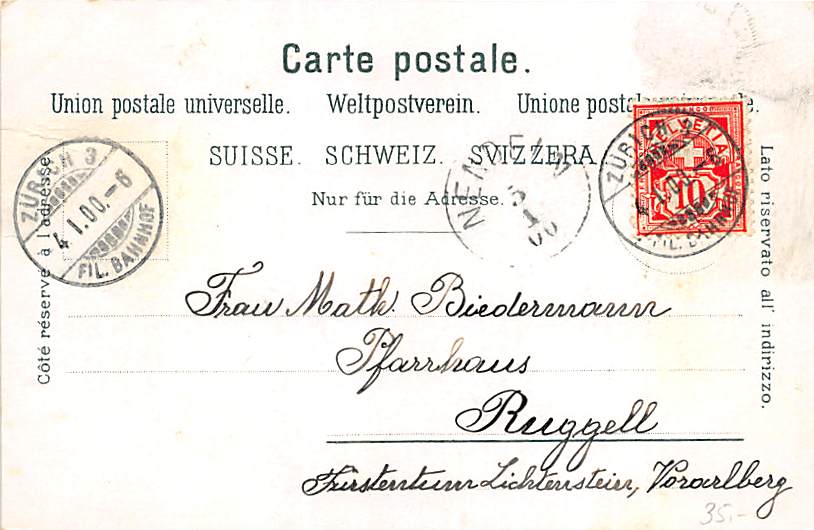 Carte postale.
Union postale universelle. Weltpostverein. Unione postale
SUISSE. SCHWEIZ. SVIZZERA.
Nur für die Adresse.
Côté réservé à l'adresse.
Lato riservato all' indirizzo.
ZÜRICH 3
4.I.00.-6
FIL. BAHNHOF
NENDELN
5
1
00
HELVETIA
10
ZÜRICH 3
4.I.00.-6
FIL. BAHNHOF
Frau Math. Biedermann
Pfarrhaus
Ruggell
Fürstentum Lichtenstein, Vorarlberg
35.-